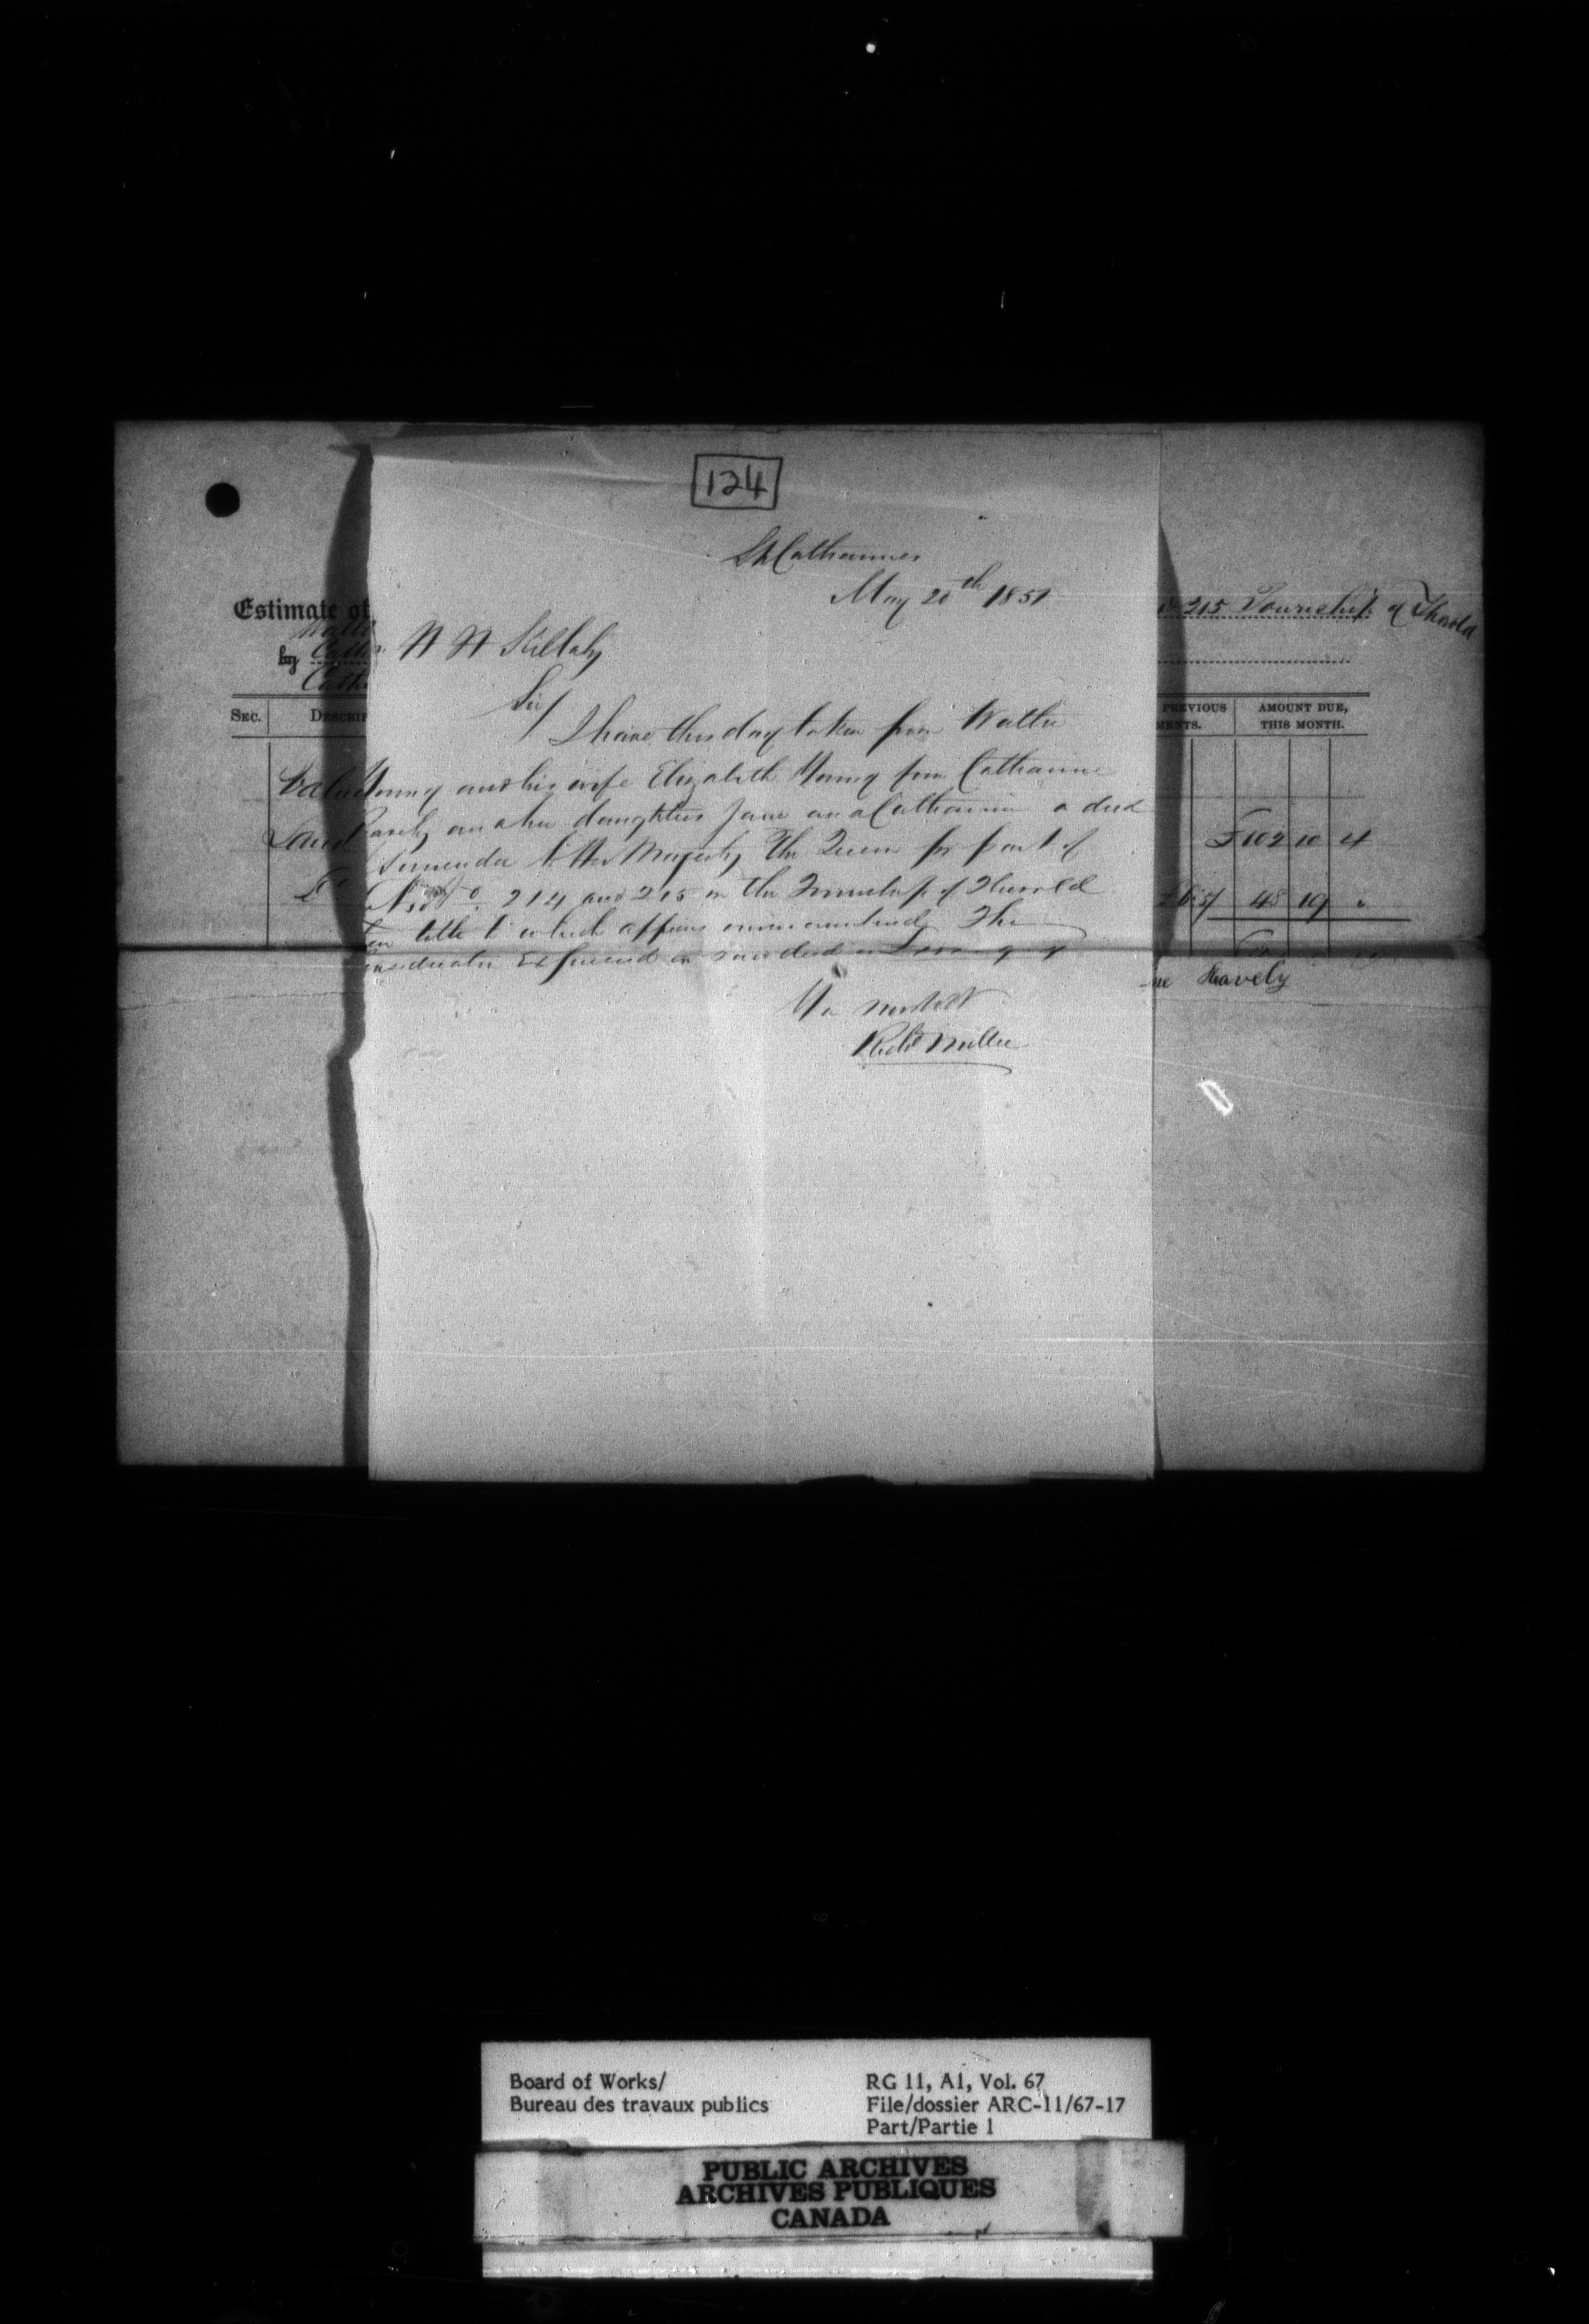 124
St Catharines
May 20th 1851
H H Killaly
Sir/
I have this day taken from Walter
Young and his wife Elizabeth Young from Catharine
and her daughters Jane and Catharine a deed
Surrender to Her Majesty The Queen for part of
214 and 215 in the Township of Thorold
title to which appears The
Expressed in said deed
Robt Miller
Estimate of
by
SEC.
DESCRIP
Value
Land
Do
215 Township of Thorold
PREVIOUS
MENTS.
AMOUNT DUE,
THIS MONTH.
£102 10 4
48 19 "
Kavely
Board of Works/
Bureau des travaux publics
RG 11, A1, Vol. 67
File/dossier ARC-11/67-17
Part/Partie 1
PUBLIC ARCHIVES
ARCHIVES PUBLIQUES
CANADA